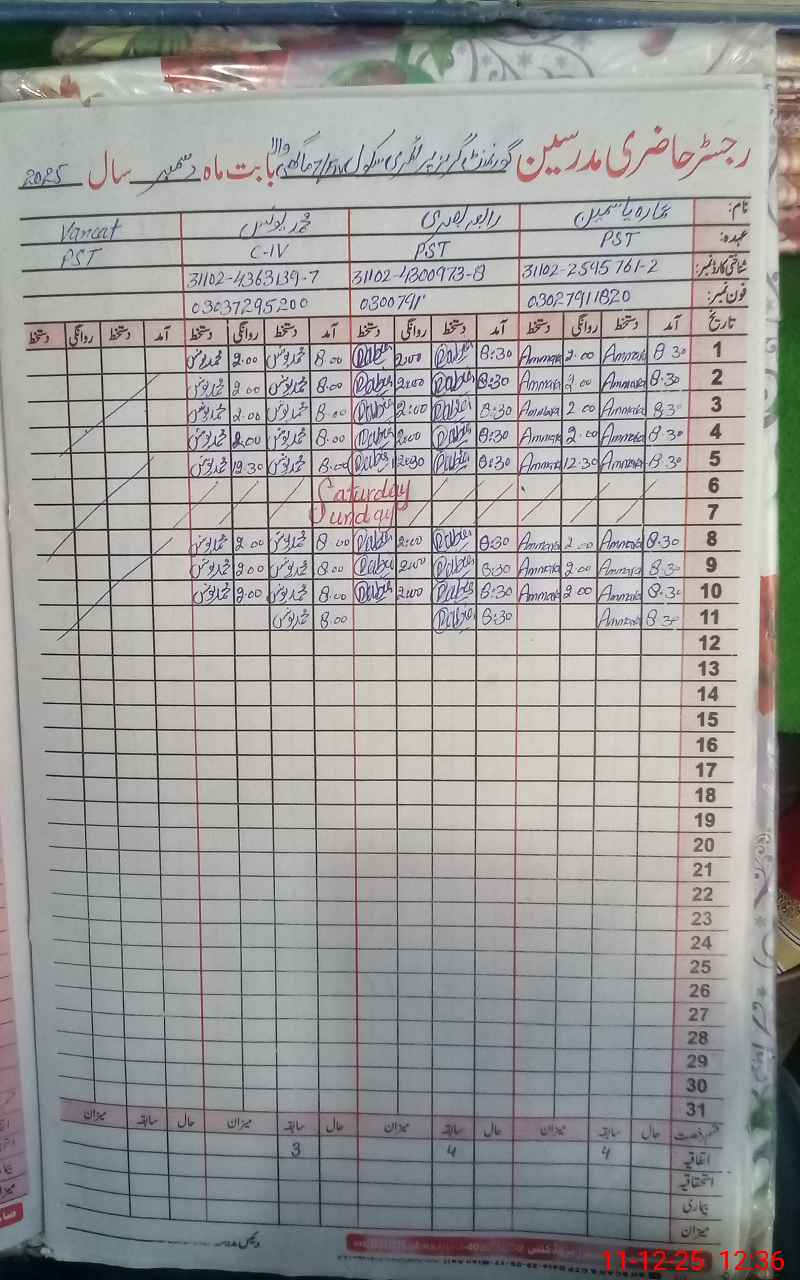 رجسٹر حاضری مدرسین گورنمنٹ گرلز پرائمری سکول بابت ماہ دسمبر سال 2025
نام: عمارہ یاسمین رابعہ بصری محمد یونس Vancat
عہدہ: PST PST C-IV PST
شناختی کارڈ نمبر: 31102-2595761-2 31102-4300973-8 31102-4363139-7
فون نمبر: 03027911820 0300791 03037295200
تاریخ آمد دستخط روانگی دستخط آمد دستخط روانگی دستخط آمد دستخط روانگی دستخط آمد دستخط روانگی دستخط
1 8.30 Ammara 2.00 Ammara 8:30 Rabia 2:00 Rabia 8.00 محمد یونس 2.00 محمد یونس
2 8.30 Ammara 2.00 Ammara 8:30 Rabia 2:00 Rabia 8.00 محمد یونس 2.00 محمد یونس
3 8.30 Ammara 2.00 Ammara 8:30 Rabia 2:00 Rabia 8.00 محمد یونس 2.00 محمد یونس
4 8.30 Ammara 2.00 Ammara 8:30 Rabia 2:00 Rabia 8.00 محمد یونس 2.00 محمد یونس
5 8.30 Ammara 12.30 Ammara 8:30 Rabia 12:30 Rabia 8.00 محمد یونس 12.30 محمد یونس
6 Saturday
7 Sunday
8 8.30 Ammara 2.00 Ammara 8:30 Rabia 2:00 Rabia 8.00 محمد یونس 2.00 محمد یونس
9 8.30 Ammara 2.00 Ammara 8:30 Rabia 2:00 Rabia 8.00 محمد یونس 2.00 محمد یونس
10 8.30 Ammara 2.00 Ammara 8:30 Rabia 2:00 Rabia 8.00 محمد یونس 2.00 محمد یونس
11 8.30 Ammara 8:30 Rabia 8.00 محمد یونس
12
13
14
15
16
17
18
19
20
21
22
23
24
25
26
27
28
29
30
31
قسم رخصت حال سابقہ میزان حال سابقہ میزان حال سابقہ میزان حال سابقہ میزان
اتفاقیہ 4 4 3
استحقاقیہ
بیماری
میزان
11-12-25 12:36